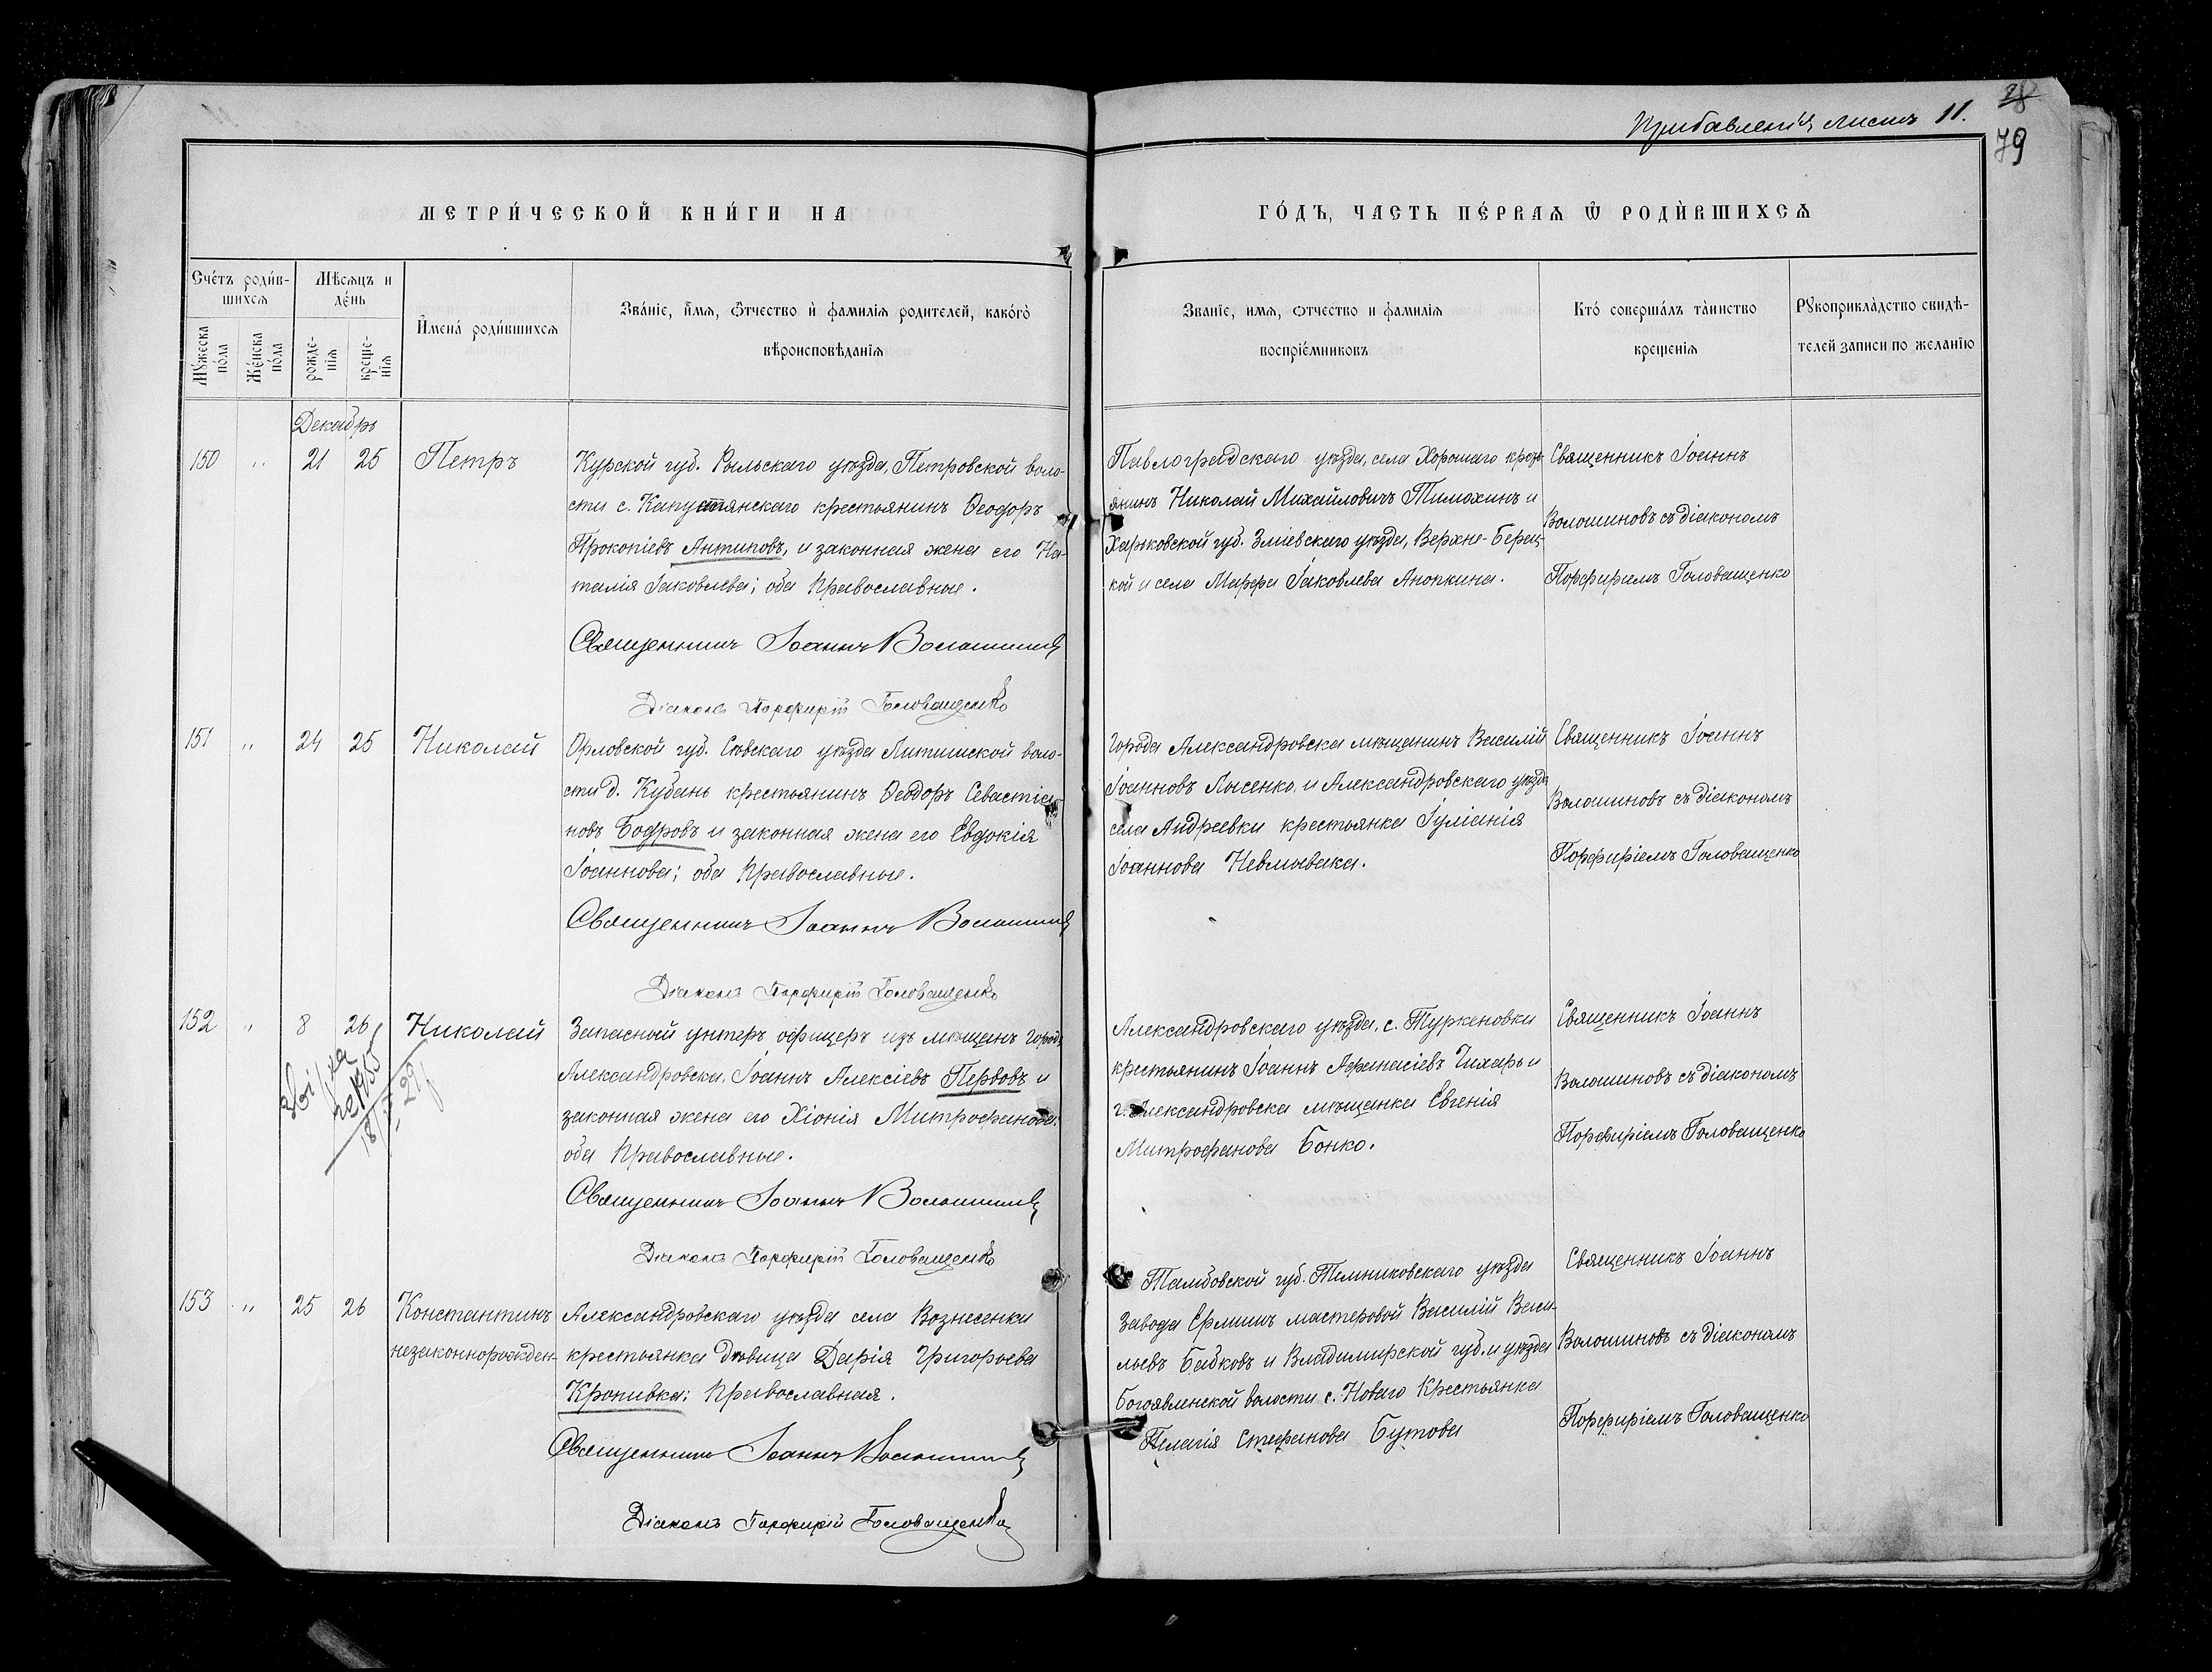 Прибавленія листъ 11.
79
МЕТРИ́ЧЕСКОЙ КНИ́ГИ НА
ГО́ДЪ, ЧАСТЬ ПЕ́РВАѦ Ѿ РОДИ́ВШИХСѦ
Сче́тъ роди́в-
шихсѧ
Мѣсѧцъ и
де́нь
Мꙋжеска
по́ла
Же́нска
по́ла
рожде-
нїѧ
креще-
нїѧ
И҆мена́ роди́вшихсѧ
Зва́нїе, и҆́мѧ, Ѻ҆́тчество и҆ фамилїѧ родителей, како́гѡ
вѣроисповѣданїѧ
Званїе, имѧ, ѻтчество и фамилїѧ
воспрїе́мниковъ
Кто́ соверша́лъ та̀инство
крещенїѧ
Рꙋкоприкла̀дство свидѣ-
телей записи по желанїю
Декабрь
150 „ 21 25 Петръ
Курской губ. Рыльскаго уѣзда, Петровской воло-
сти с. Капустянскаго крестьянинъ Ѳеодоръ
Прокопіевъ Антиповъ, и законная жена его На-
талія Іаковлева; оба Православные.
Священникъ Іоаннъ Волошиновъ
Діаконъ Порфирій Головащенко
Павлоградскаго уѣзда, села Хорошаго кресть-
янинъ Николай Михайловичъ Тимохинъ и
Харьковской губ. Зміевскаго уѣзда, Верхне-Берец-
кой и села Марфа Іаковлева Анопкина.
Священникъ Іоаннъ
Волошиновъ съ діакономъ
Порфиріемъ Головащенко
151 „ 24 25 Николай
Орловской губ. Сѣвскаго уѣзда Литишской воло-
сти д. Кубань крестьянинъ Ѳеодоръ Севастіа-
новъ Бодровъ и законная жена его Евдокія
Іоаннова; оба Православные.
Священникъ Іоаннъ Волошиновъ
Діаконъ Порфирій Головащенко
Города Александровска мѣщанинъ Василій
Іоанновъ Лысенко, и Александровскаго уѣзда
села Андреевки крестьянка Іуліанія
Іоаннова Невмывака.
Священникъ Іоаннъ
Волошиновъ съ діакономъ
Порфиріемъ Головащенко
152 „ 8 26 Николай
18/IV 29
Запасный унтеръ офицеръ изъ мѣщанъ города
Александровска, Іоаннъ Алексіевъ Первовъ и
законная жена его Хіонія Митрофанова:
оба Православные.
Священникъ Іоаннъ Волошиновъ
Діаконъ Порфирій Головащенко
Александровскаго уѣзда, с. Туркеновки
крестьянинъ Іоаннъ Афанасіевъ Чихарь и
г. Александровска мѣщанка Евгенія
Митрофанова Бонко.
Священникъ Іоаннъ
Волошиновъ съ діакономъ
Порфиріемъ Головащенко
153 „ 25 26 Константинъ
незаконнорожден-
Александровскаго уѣзда села Вознесенки
крестьянка дѣвица Дарія Григорьева
Кропивка; Православная.
Священникъ Іоаннъ Волошиновъ
Діаконъ Порфирій Головащенко
Тамбовской губ. Темниковскаго уѣзда
завода Ермишъ мастеровой Василій Васи-
льевъ Бабковъ и Владимирской губ. и уѣзда
Богоявленской волости с. Новаго Крестьянка
Пелагія Стефанова Бутова
Священникъ Іоаннъ
Волошиновъ съ діакономъ
Порфиріемъ Головащенко